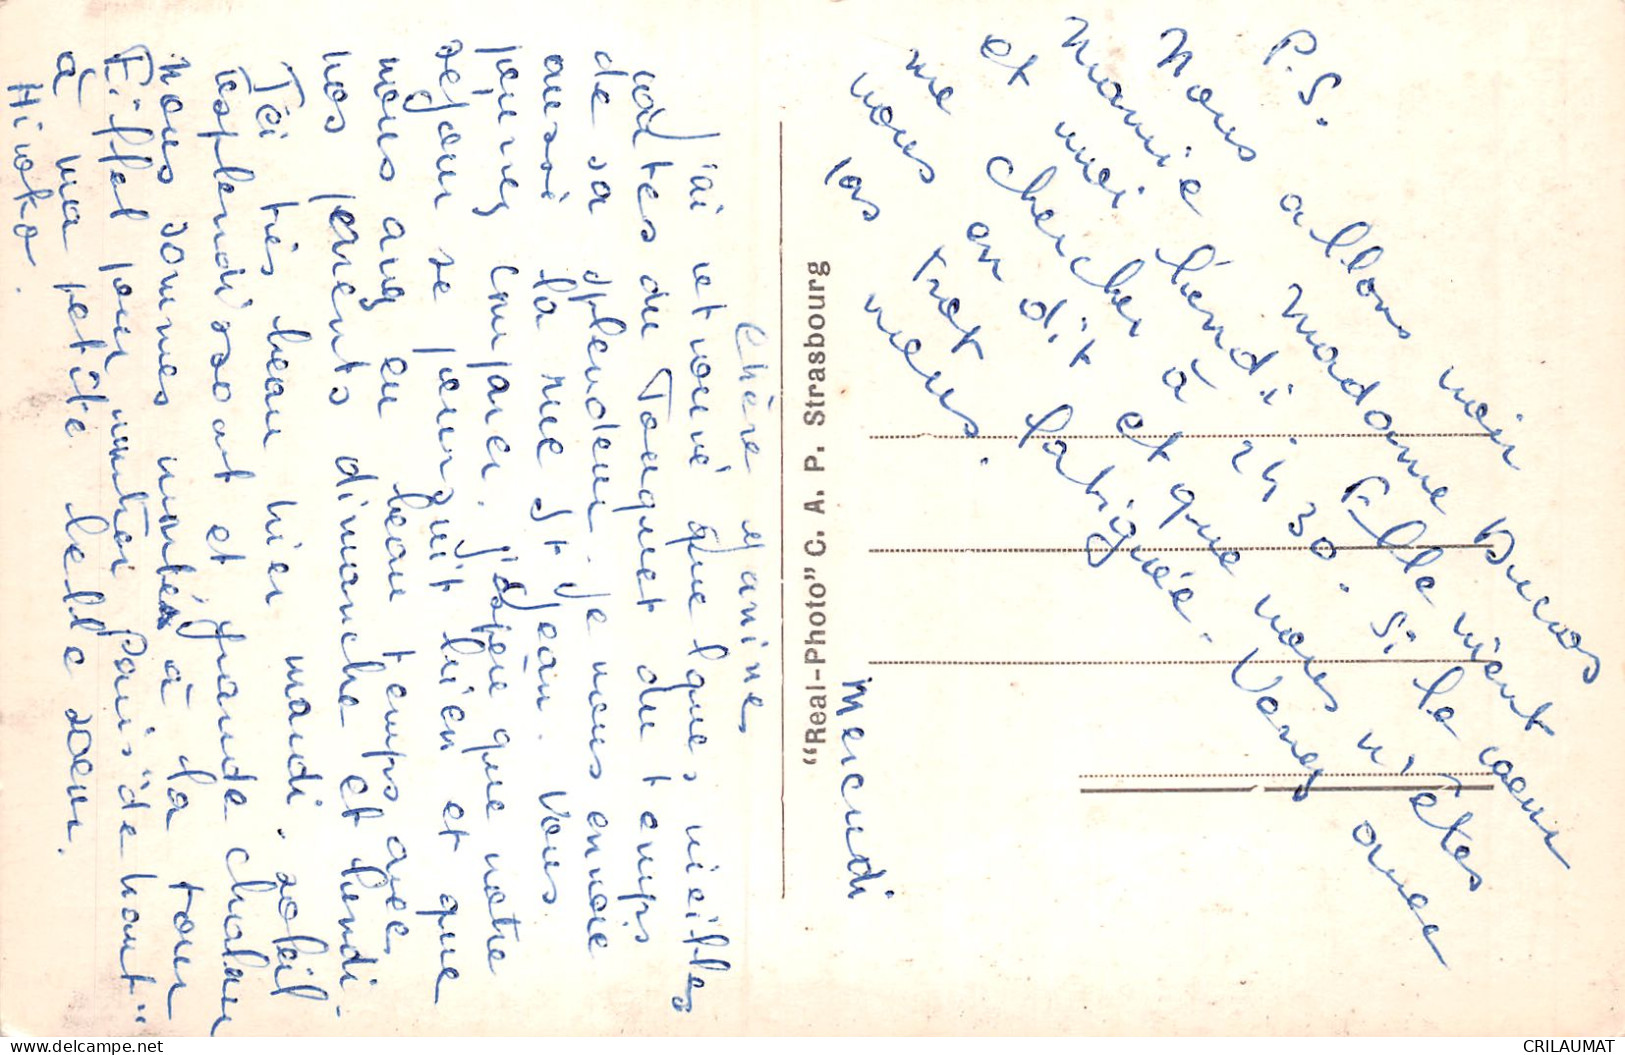 Mercredi
Chère Janine,
J'ai retrouvé quelques vieilles
cartes du Touquet du temps
de sa splendeur. Je vous envoie
aussi la rue St Jean. Vous
pouvez comparer. J'espère que votre
séjour se poursuit bien et que
vous avez eu beau temps avec
vos parents dimanche et lundi.
Ici très beau hier mardi. soleil
resplendissant et grande chaleur
nous sommes montés à la tour
Eiffel pour montrer Paris "de haut"
à ma petite belle soeur.
Hiroko.
P.S.
Nous allons voir
Mamie Madame Ducros
et moi lundi. Elle vient
me chercher à 14 30. Si le coeur
vous en dit et que vous n'êtes
pas trop fatiguée. Venez avec
nous.
"Real-Photo" C. A. P. Strasbourg
CRILAUMAT